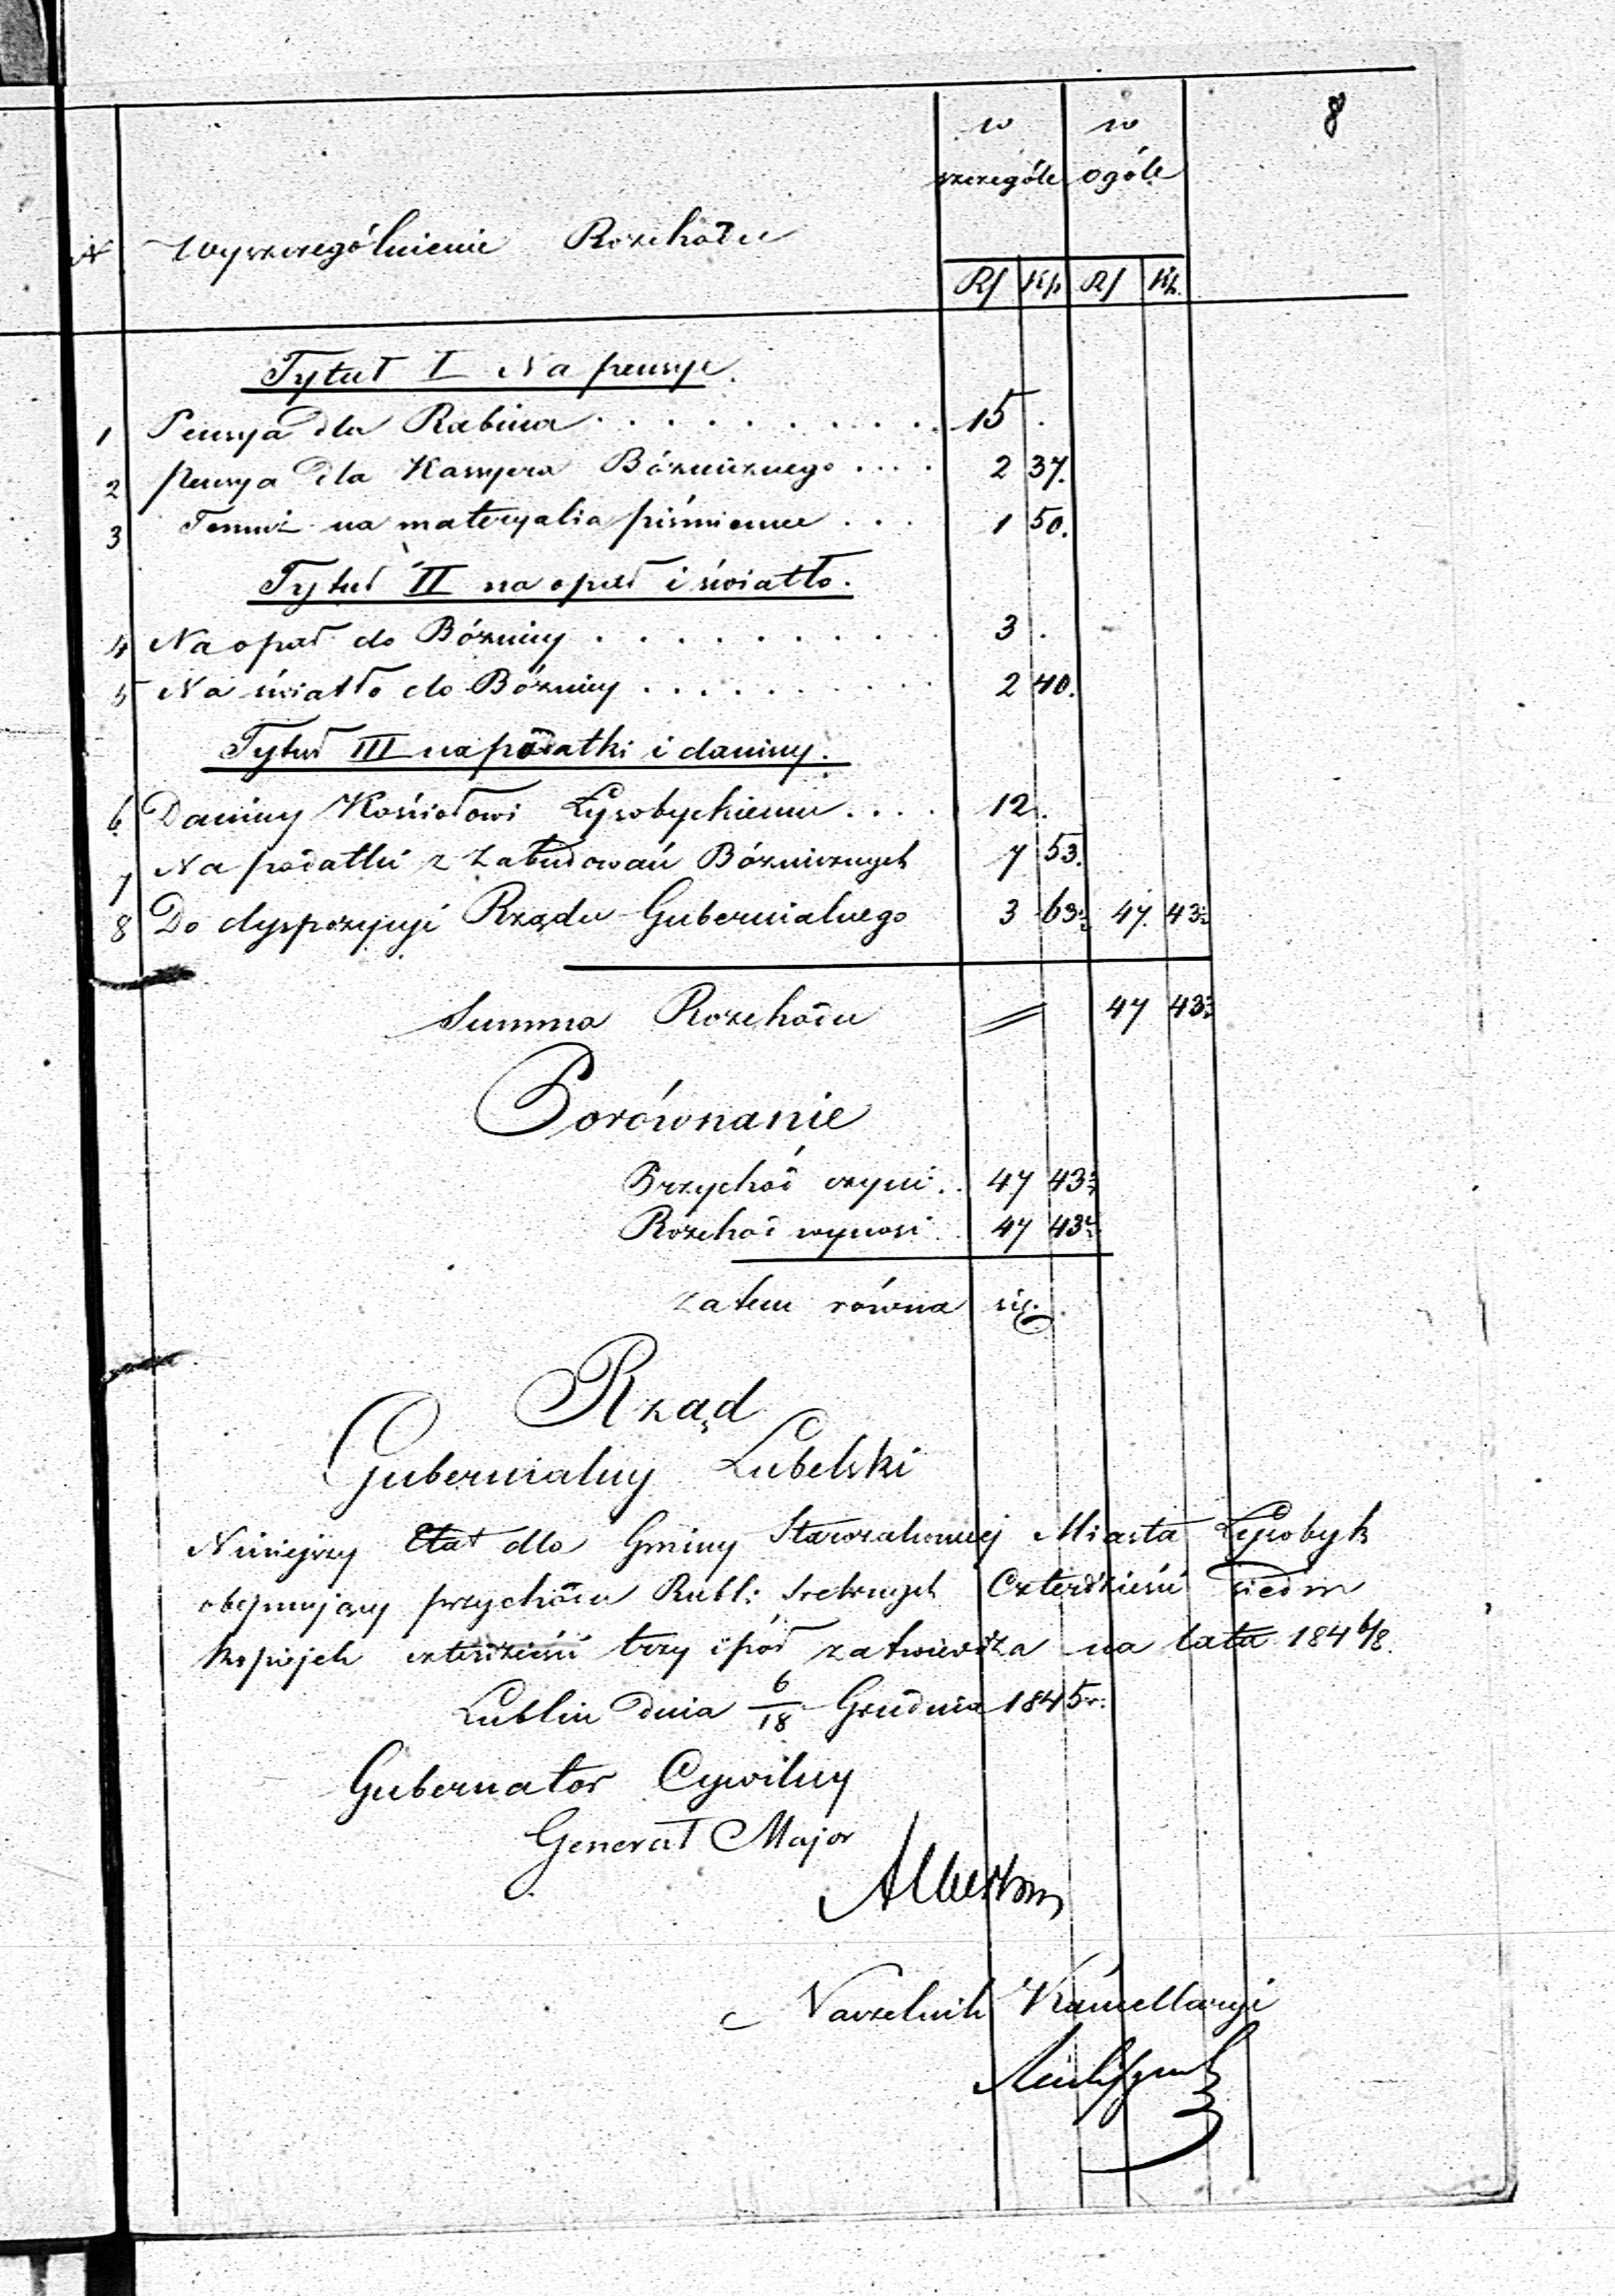 8
w w
szczególe ogóle
N Wyszczególnienie Rozchodu
Rs Kp. Rs Kp.
Tytuł I Na pensye.
1 Pensya dla Rabina . . . . . . . . . . 15 .
2 pensya dla Kassyera Bóżnicznego . . . . 2 37.
3 Temuż na materyalia piśmienne . . . 1 50.
Tytuł II na opał i światło.
4 Na opał do Bóżnicy . . . . . . . . . 3 .
5 Na światło do Bóżnicy . . . . . . . . 2 40.
Tytuł III na podatki i daniny.
6 Daniny Kościołowi Łysobyckiemu . . . . 12 .
7 Na podatki z Zabudowań Bóżnicznych 7 53.
8 Do dyspozycyi Rządu Gubernialnego 3 63½ 47. 43½
Summa Rozchodu 47 43½
Porównanie
Przychód czyni . . 47 43½
Rozchód wynosi . . 47 43½
zatem równa się.
Rząd
Gubernialny Lubelski
Niniejszy Etat dla Gminy Starozakonnej Miasta Łysobyk
obejmujący przychodu Rubli: Srebrnych Czterdzieści siedm
kopiejek czterdzieści trzy i pół zatwierdza na lata 1846/8.
Lublin dnia 6/18 Grudnia 1845 r:
Gubernator Cywilny
Generał Major
Albertow
Naczelnik Kancellaryi